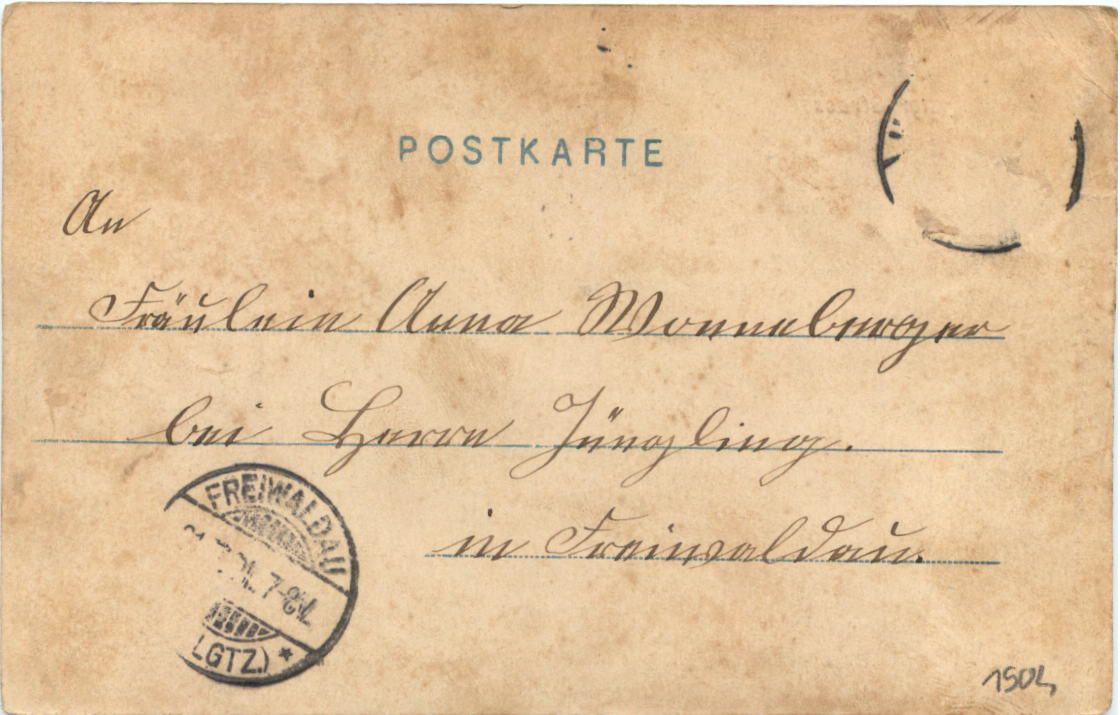 POSTKARTE
An
Fräulein Anna Wonneberger
bei Herrn Jüngling.
in Freiwaldau.
FREIWALDAU
7-8
LGTZ.) *
1504